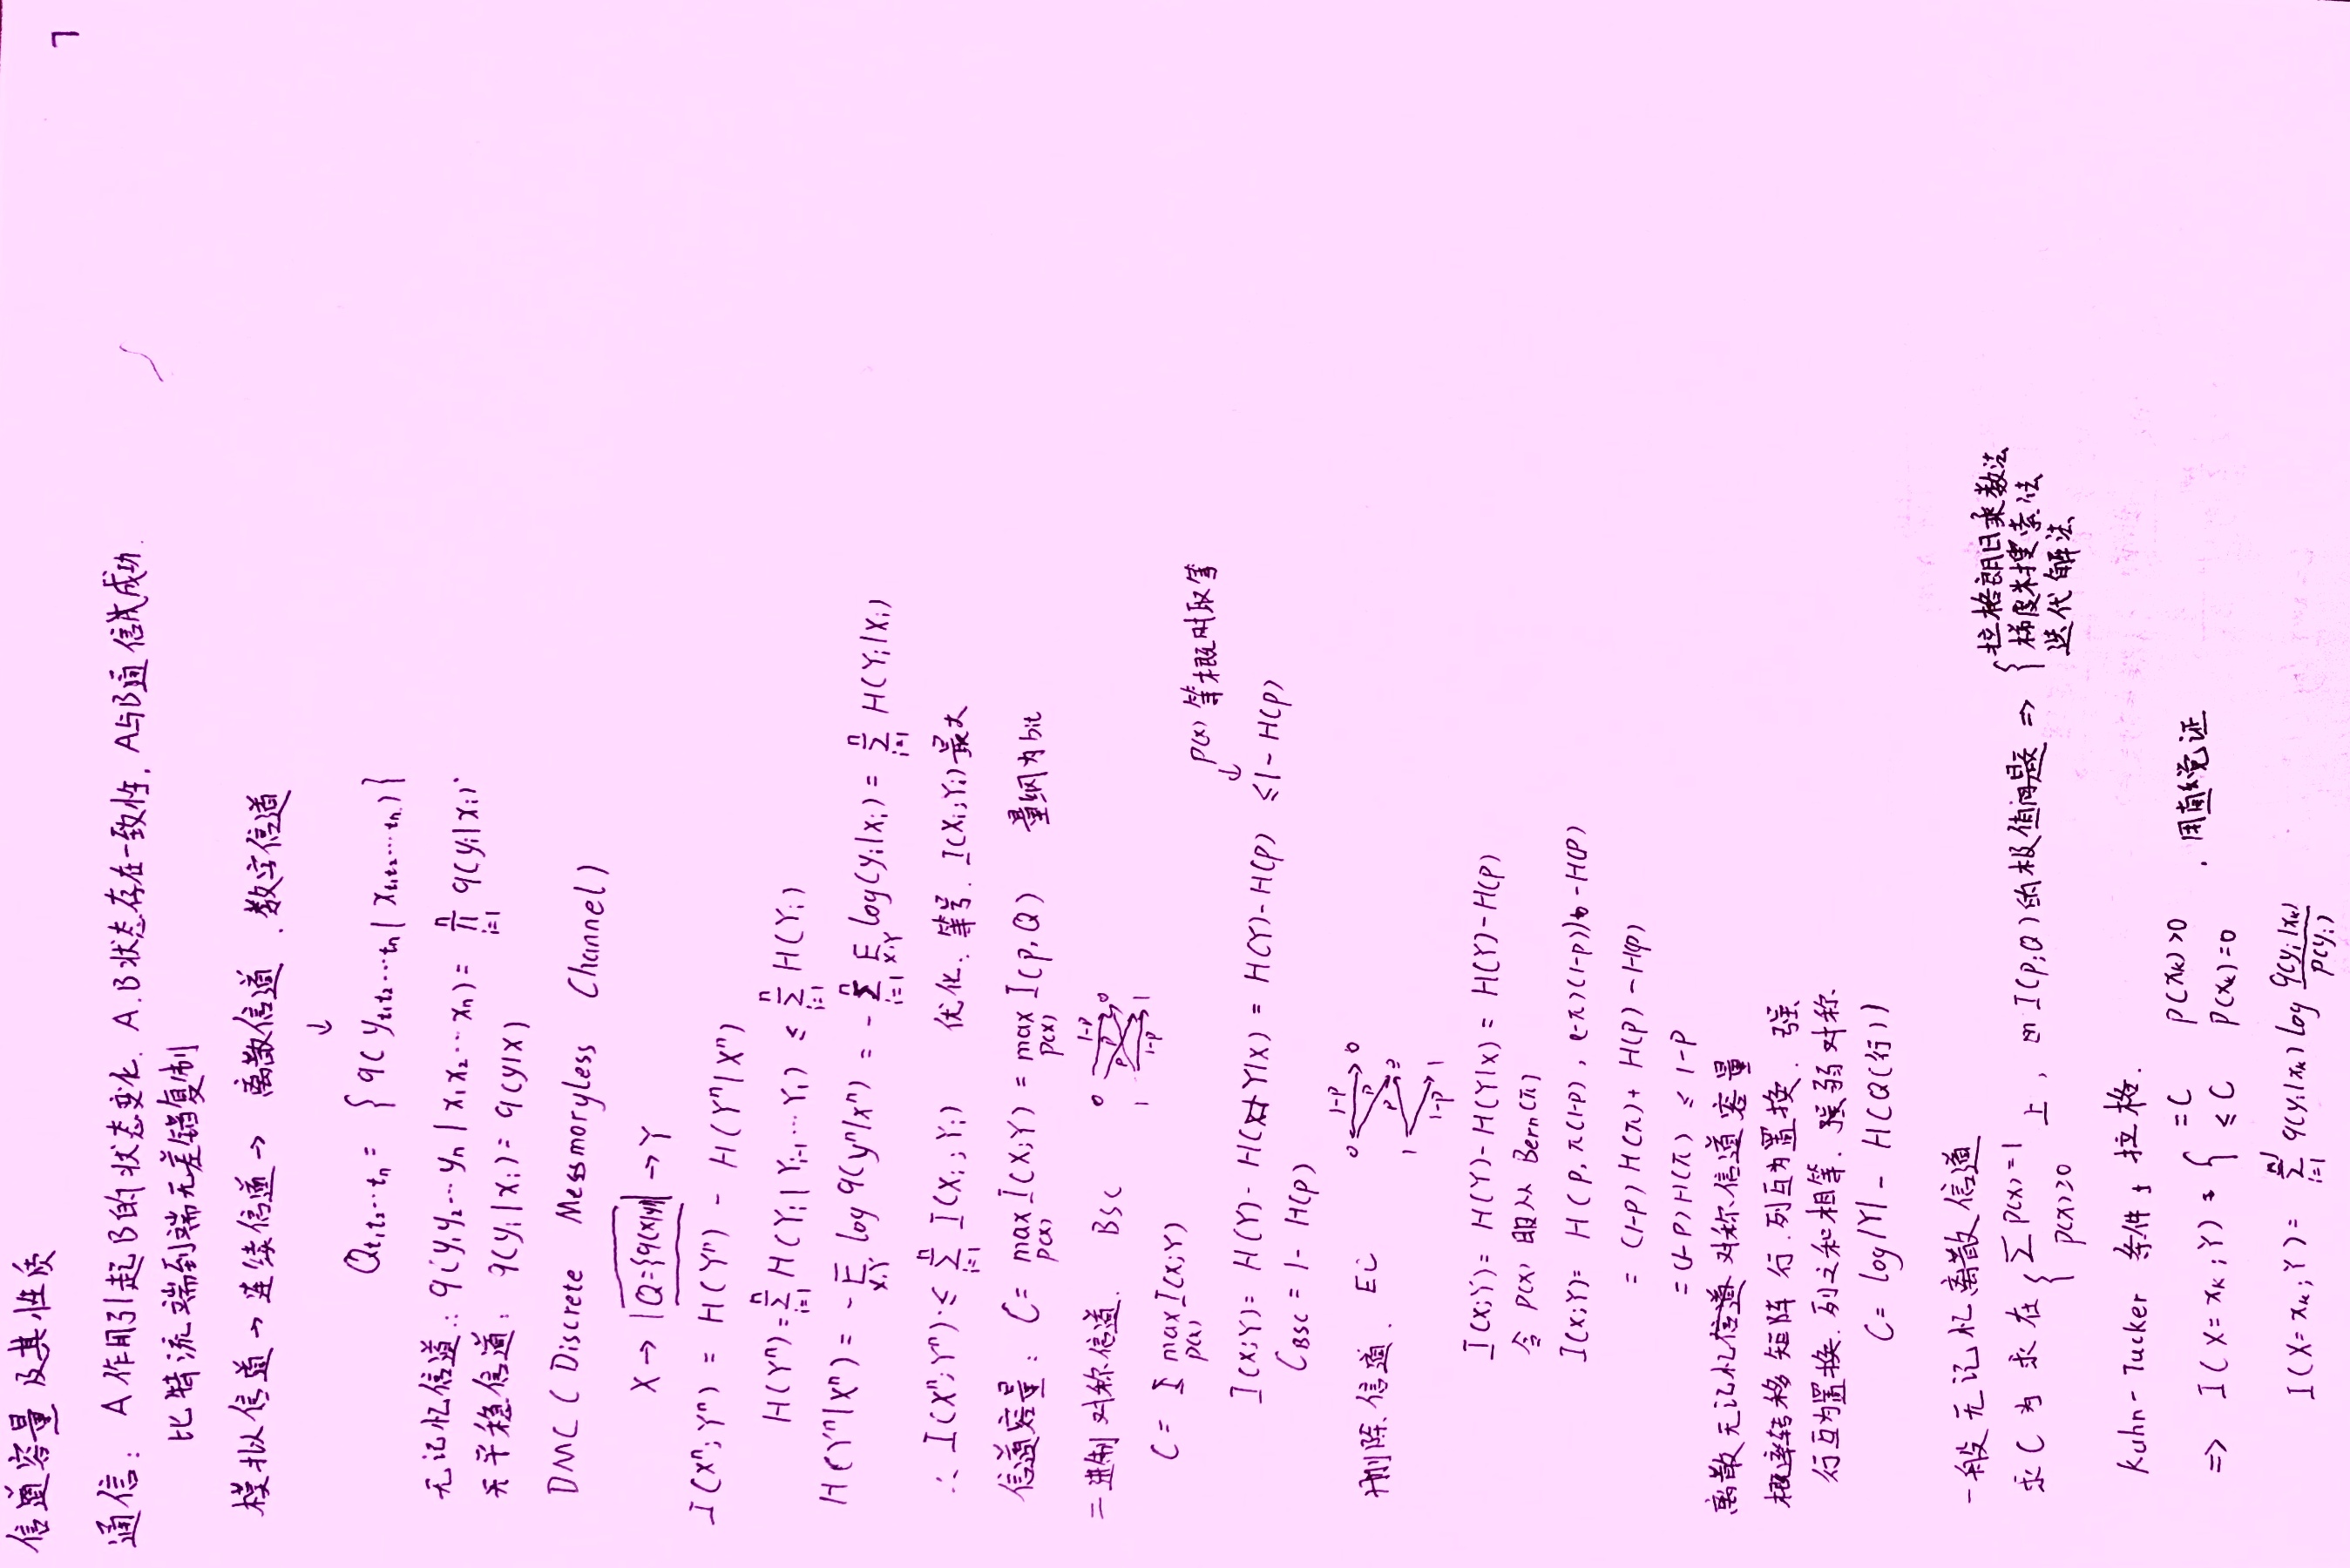 信道容量及其性质
7
通信: A作用引起B的状态变化. A.B状态存在一致性, A与B通信成功.
比特流端到端无差错复制
模拟信道 → 连续信道 → 离散信道 . 数字信道
↓
Q_{t₁t₂…t_n} = { q( y_{t₁t₂…t_n} | x_{t₁t₂…t_n} ) }
无记忆信道: q(y₁y₂…y_n | x₁x₂…x_n) = ∏_{i=1}^{n} q(y_i|x_i)
平稳信道: q(y_i|x_i) = q(y|x)
DMC ( Discrete Memoryless Channel)
X → Q={q(x|y)} → Y
I(Xⁿ;Yⁿ) = H(Yⁿ) - H(Yⁿ|Xⁿ)
H(Yⁿ) = ∑_{i=1}^{n} H(Y_i | Y_{i-1}…Y₁) ≤ ∑_{i=1}^{n} H(Y_i)
H(Yⁿ|Xⁿ) = - E_{X,Y} log q(yⁿ|xⁿ) = - ∑_{i=1}^{n} E_{X,Y} log(y_i|x_i) = ∑_{i=1}^{n} H(Y_i|X_i)
∴ I(Xⁿ;Yⁿ) ≤ ∑_{i=1}^{n} I(X_i;Y_i) 优化: 等号. I(X_i;Y_i)最大
信道容量: C = max_{p(x)} I(X;Y) = max_{p(x)} I(p,Q) 量纲为bit
二进制对称信道. BSC 0 1-p 0 p p 1 1-p 1
C = max_{p(x)} I(X;Y)
p(x) 等概时取等
↓
I(X;Y) = H(Y) - H(Y|X) = H(Y)-H(p) ≤ 1 - H(p)
C_{BSC} = 1 - H(p)
删除信道. EC 0 1-p 0 p p 2 1 1-p 1
I(X;Y) = H(Y)-H(Y|X) = H(Y)-H(p)
令 p(x) 服从 Bern(π)
I(X;Y) = H(p, π(1-p), (1-π)(1-p)) - H(p)
= (1-p) H(π) + H(p) - H(p)
= (1-p)H(π) ≤ 1-p
离散无记忆信道 对称信道容量
概率转移矩阵 行.列互为置换. 强
行互为置换. 列之和相等. 弱对称
C = log|Y| - H(Q(行))
一般无记忆离散信道
求C为求在 { ∑p(x)=1 p(x)≥0 上, I(p;Q)的极值问题 ⇒ { 拉格朗日乘数法
梯度搜索法
迭代解法
Kuhn-Tucker 条件, 拉格.
⇒ I(X=x_k;Y) = { =C p(x_k)>0
≤C p(x_k)=0 . 用直觉证
I(X=x_k;Y) = ∑_{i=1}^{J} q(y_i|x_k) log q(y_i|x_k)/p(y_i)